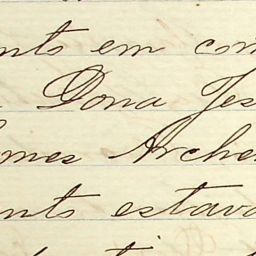 nto em con
Dona Jes
omes Archer
nto estava